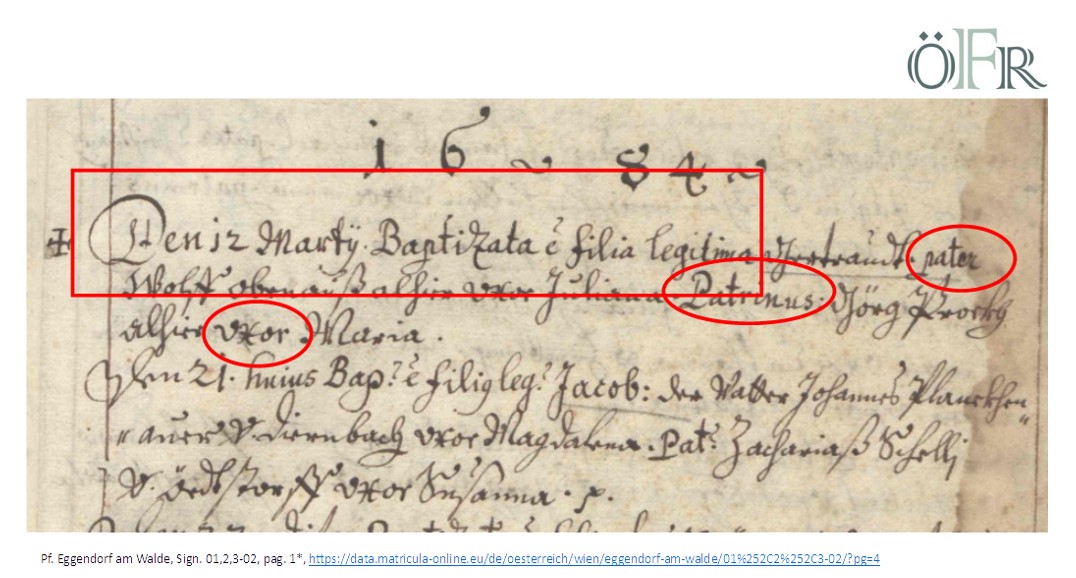 ÖFR
1 6 84
Den 12 Martÿ. Baptizata ē filia legitima Gertraudt. pater
Wolff obenauß alhier uxor Juliana. Patrinus: Görg Procky
alhier uxor Maria.
Den 21. huius Bap: ē filig leg: Jacob: der Vatter Johannes Planckhen„
„auer V. Diernbach uxor Magdalena. Pat: Zachariaß Schelly
V. uxor Susanna. p.
Pf. Eggendorf am Walde, Sign. 01,2,3-02, pag. 1*, https://data.matricula-online.eu/de/oesterreich/wien/eggendorf-am-walde/01%252C2%252C3-02/?pg=4